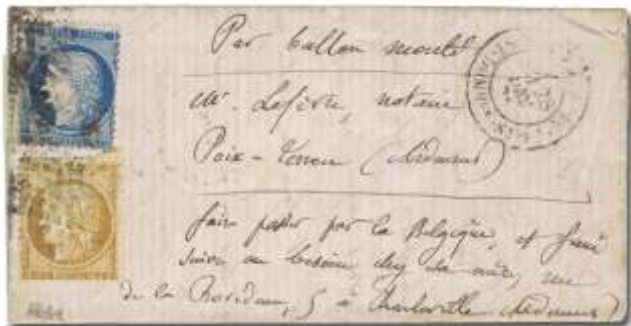 Par ballon monté
Mr. Lefèvre, notaire
Poix-Terron (Ardennes)
faire passer par la Belgique, et faire
suivre au besoin chez sa mère, rue
de la 5 à Charleville (Ardennes)